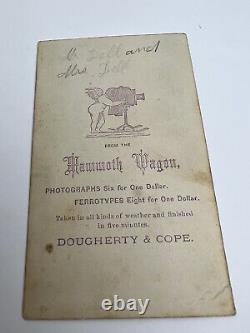 and
Mrs. Dell
FROM THE
Mammoth Wagon,
PHOTOGRAPHS Six for One Dollar.
FERROTYPES Eight for One Dollar.
Taken in all kinds of weather and finished
in five minutes.
DOUGHERTY & COPE.